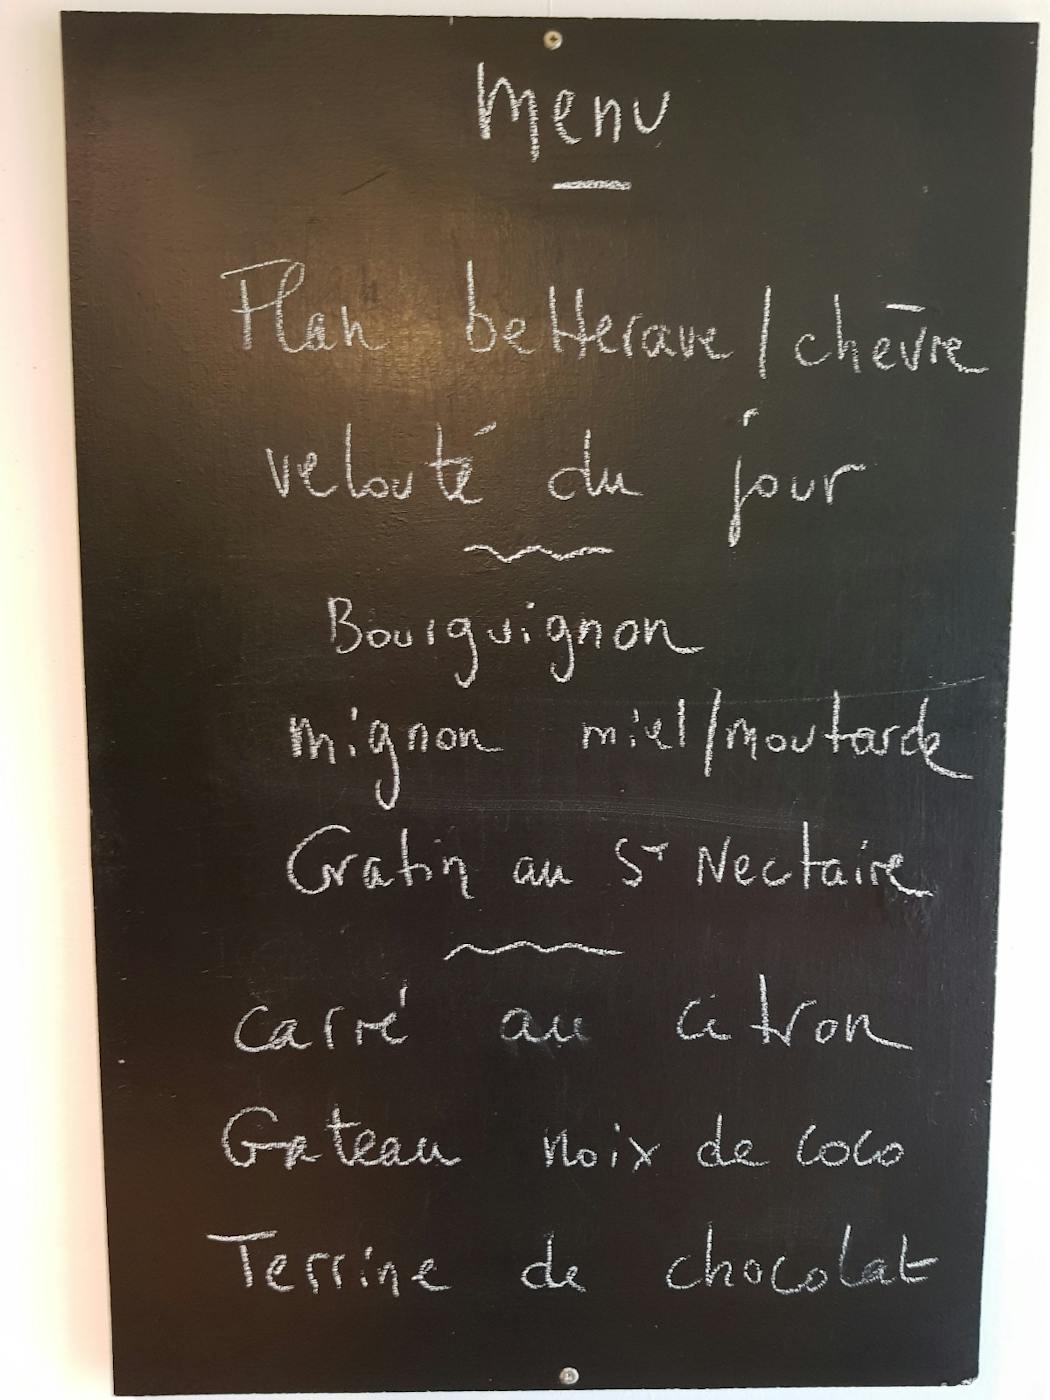 Menu
Flan betterave/chèvre
velouté du jour
Bourguignon
mignon miel/moutarde
Gratin au St Nectaire
carré au citron
Gateau noix de coco
Terrine de chocolat